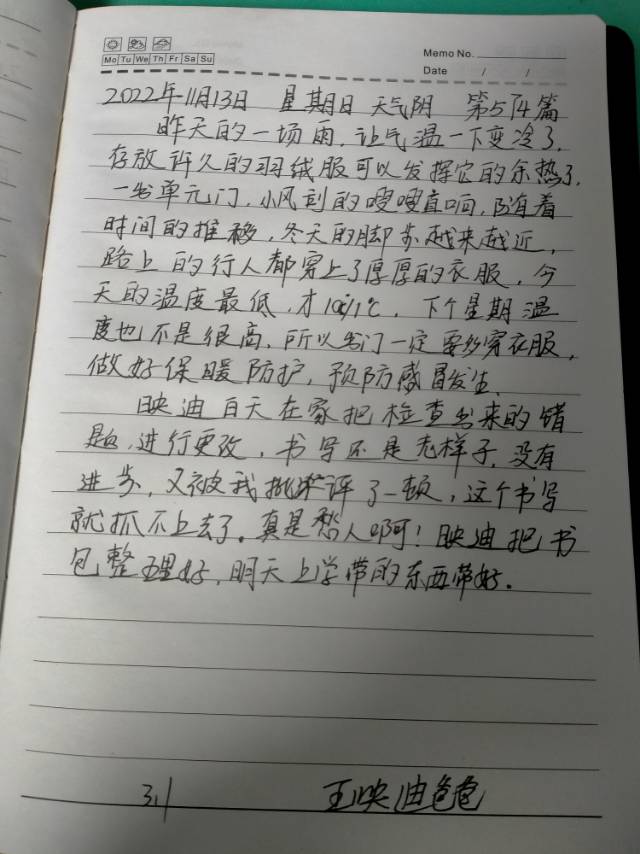 Memo No.
Mo Tu We Th Fr Sa Su
Date / /
2022年11月13日 星期日 天气阴 第514篇
昨天的一场雨,让气温一下变冷了,
存放许久的羽绒服可以发挥它的余热了,
一出单元门,小风刮的嗖嗖直响,随着
时间的推移,冬天的脚步越来越近,
路上的行人都穿上了厚厚的衣服,今
天的温度最低,才1℃,下个星期温
度也不是很高,所以出门一定要多穿衣服,
做好保暖防护,预防感冒发生。
映迪白天在家把检查出来的错
题,进行更改,书写还是老样子,没有
进步,又被我批评了一顿,这个书写
就抓不上去了。真是愁人啊!映迪把书
包整理好,明天上学带的东西带好。
31
王映迪爸爸